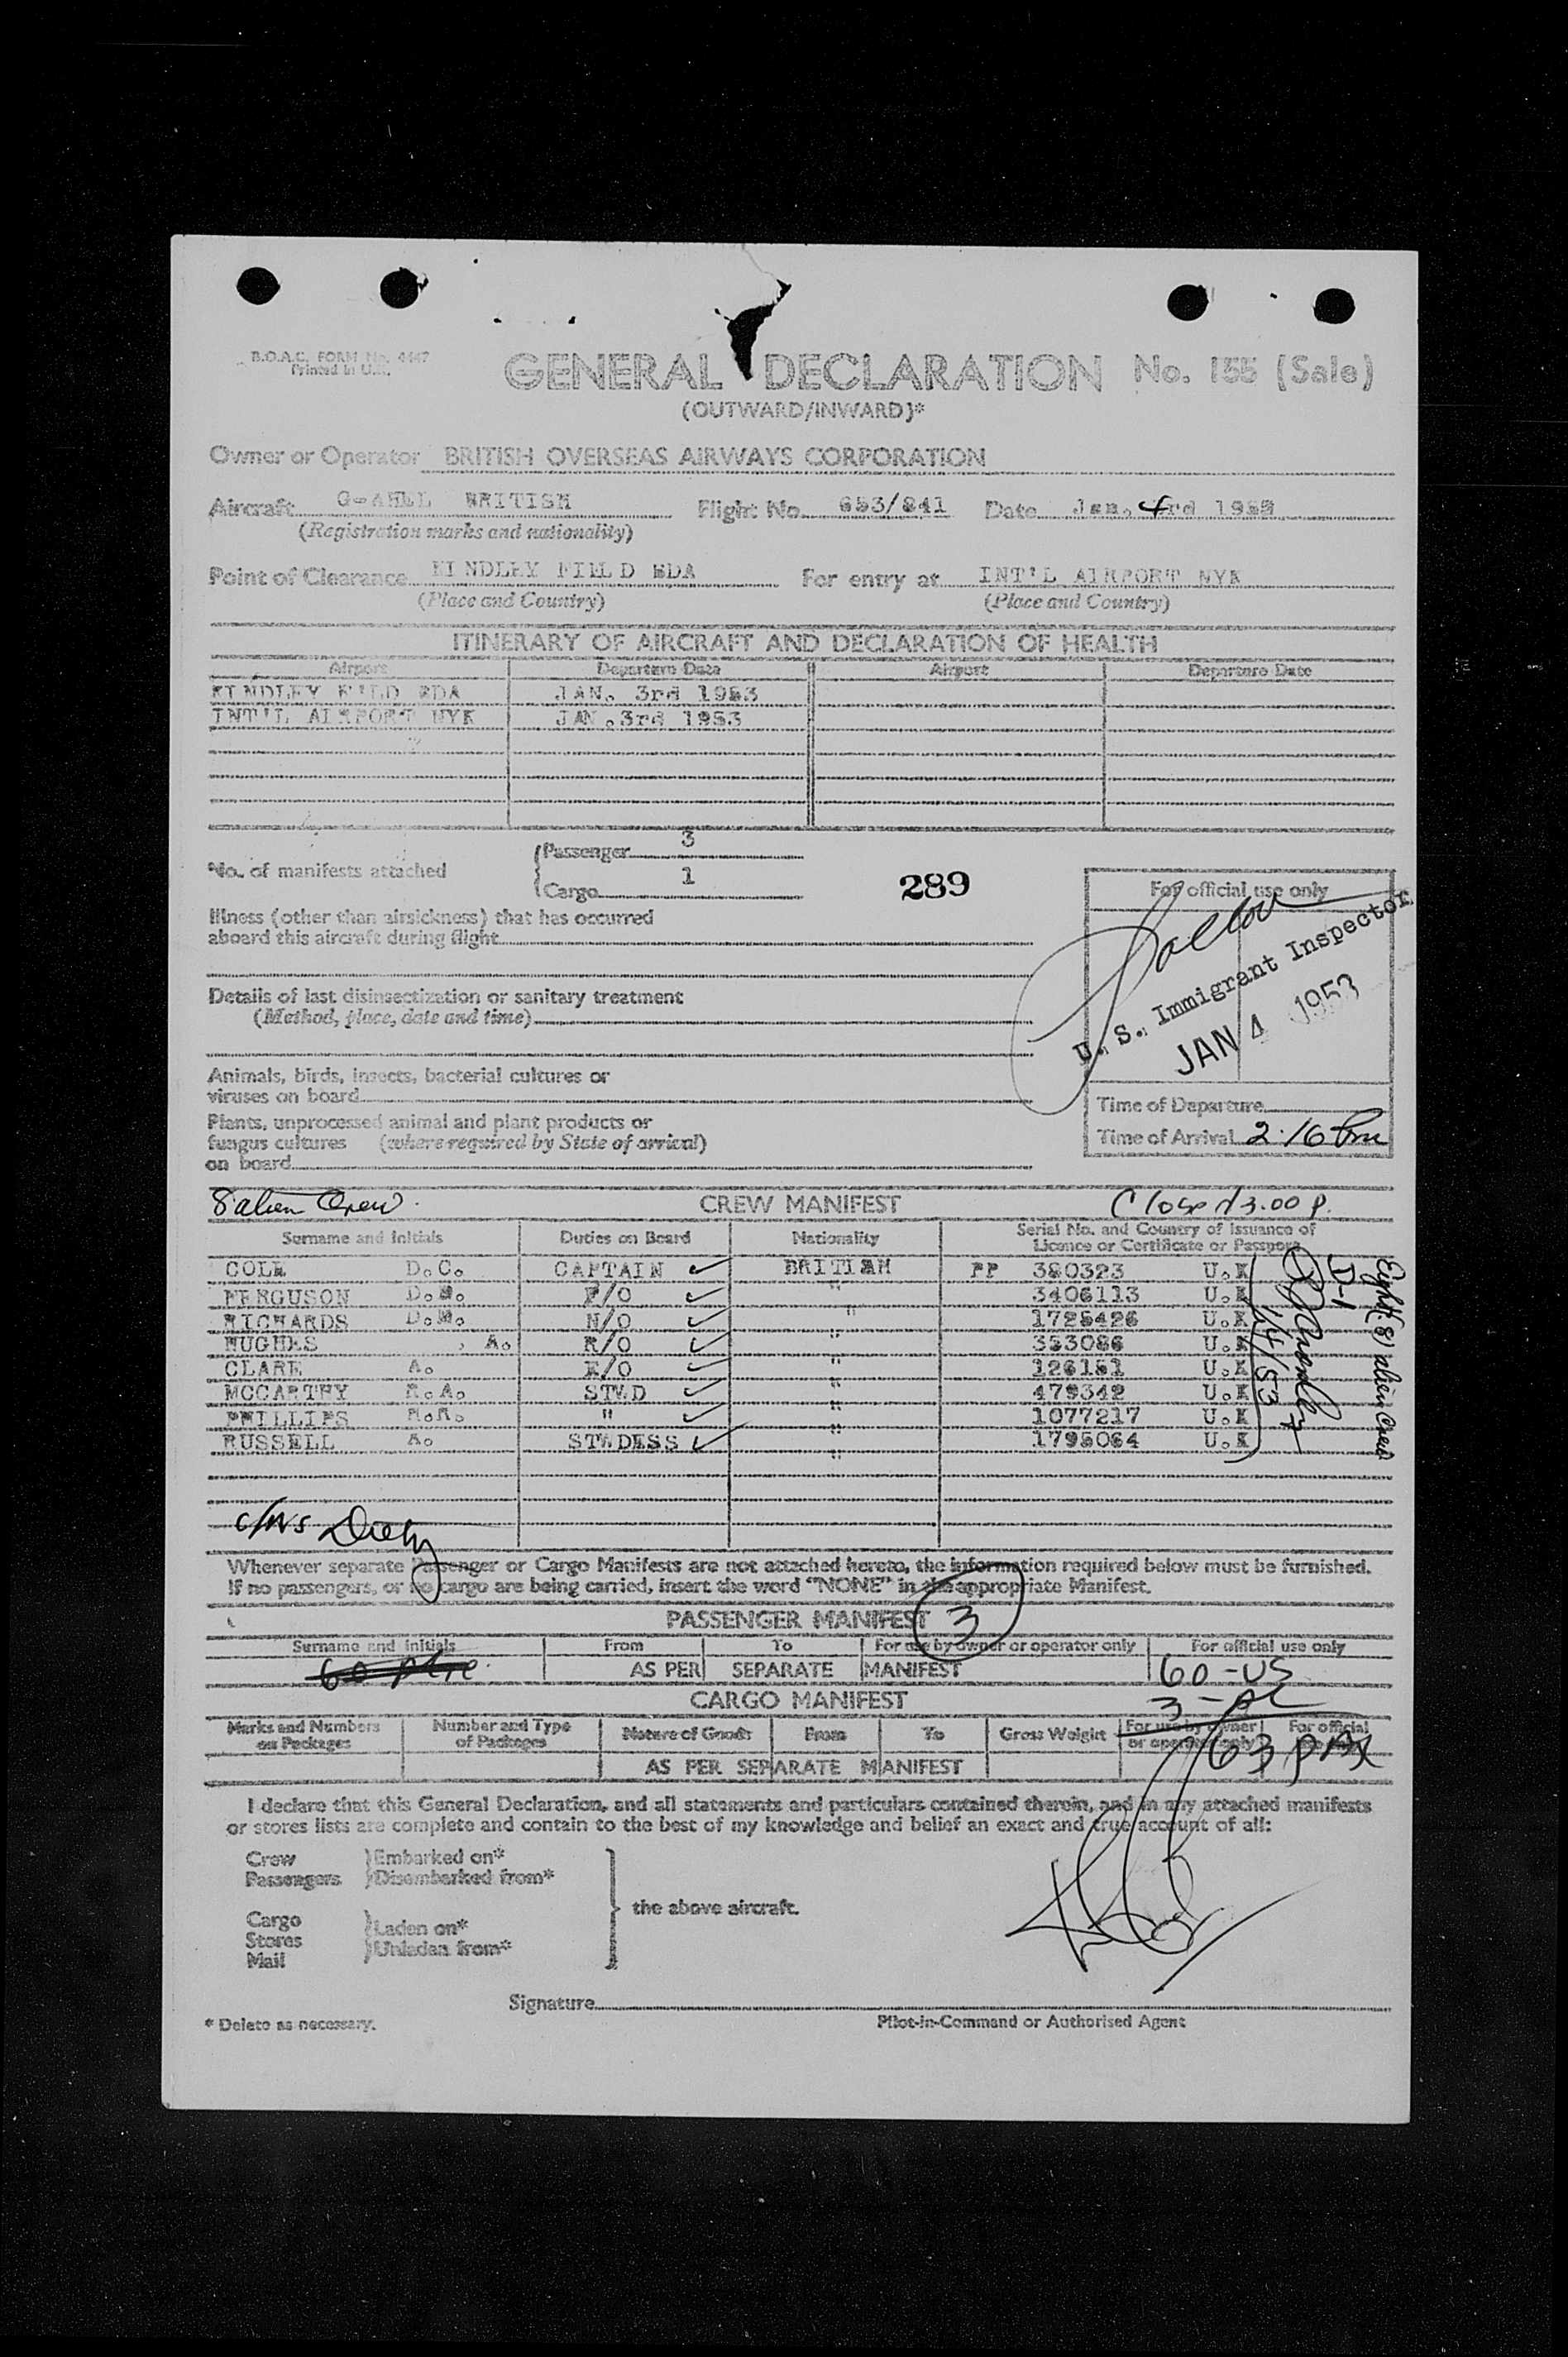 B.O.A.C. FORM No. 4447
Printed in U.K.
GENERAL DECLARATION No. 155 (Sale)
(OUTWARD/INWARD)*
Owner or Operator BRITISH OVERSEAS AIRWAYS CORPORATION
Aircraft BRITISH Flight No. 653/841 Date Jan. 4rd 1953
(Registration marks and nationality)
Point of Clearance KINDLEY FIELD BDA For entry at INT'L AIRPORT NYK
(Place and Country) (Place and Country)
ITINERARY OF AIRCRAFT AND DECLARATION OF HEALTH
Airport Departure Date Airport Departure Date
KINDLEY FILD BDA JAN. 3rd 1953
INT'L AIRPORT NYK JAN.3rd 1953
No. of manifests attached
Passenger 3
Cargo 1
289
For official use only
Illness (other than airsickness) that has occurred
aboard this aircraft during flight
U. S. Immigrant Inspector
JAN 4 1953
Details of last disinsectization or sanitary treatment
(Method, place, date and time)
Animals, birds, insects, bacterial cultures or
viruses on board
Plants, unprocessed animal and plant products or
fungus cultures (where required by State of arrival)
on board
Time of Departure
Time of Arrival 2:16 Pm
8 alien Crew CREW MANIFEST Closed 3.00 P.
Surname and Initials Duties on Board Nationality Serial No. and Country of Issuance of
Licence or Certificate or Passport
COLE D.C. CAPTAIN BRITISH PP 380323 U.K
FERGUSON D.M. F/O " 3406113 U.K
RICHARDS D.M. N/O " 1725426 U.K
HUGHES A. R/O " 353086 U.K
CLARK A. E/O " 126151 U.K
MCCARTHY R.A. STWD " 479342 U.K
PHILLIPS " " 1077217 U.K
RUSSELL A. STWDESS " 1795064 U.K
Eight (8) alien Crew
D-1
1/4/53
Whenever separate Passenger or Cargo Manifests are not attached hereto, the information required below must be furnished.
If no passengers, or no cargo are being carried, insert the word "NONE" in the appropriate Manifest.
PASSENGER MANIFEST 3
Surname and Initials From To For use by owner or operator only For official use only
AS PER SEPARATE MANIFEST 60-US
CARGO MANIFEST 3-
Marks and Numbers on Packages Number and Type of Packages Nature of Goods From To Gross Weight For use by owner or operator only For official
63 PAX
AS PER SEPARATE MANIFEST
I declare that this General Declaration, and all statements and particulars contained therein, and in any attached manifests
or stores lists are complete and contain to the best of my knowledge and belief an exact and true account of all:
Crew Embarked on*
Passengers Disembarked from*
the above aircraft.
Cargo Laden on*
Stores
Mail Unladen from*
Signature
* Delete as necessary. Pilot-in-Command or Authorised Agent